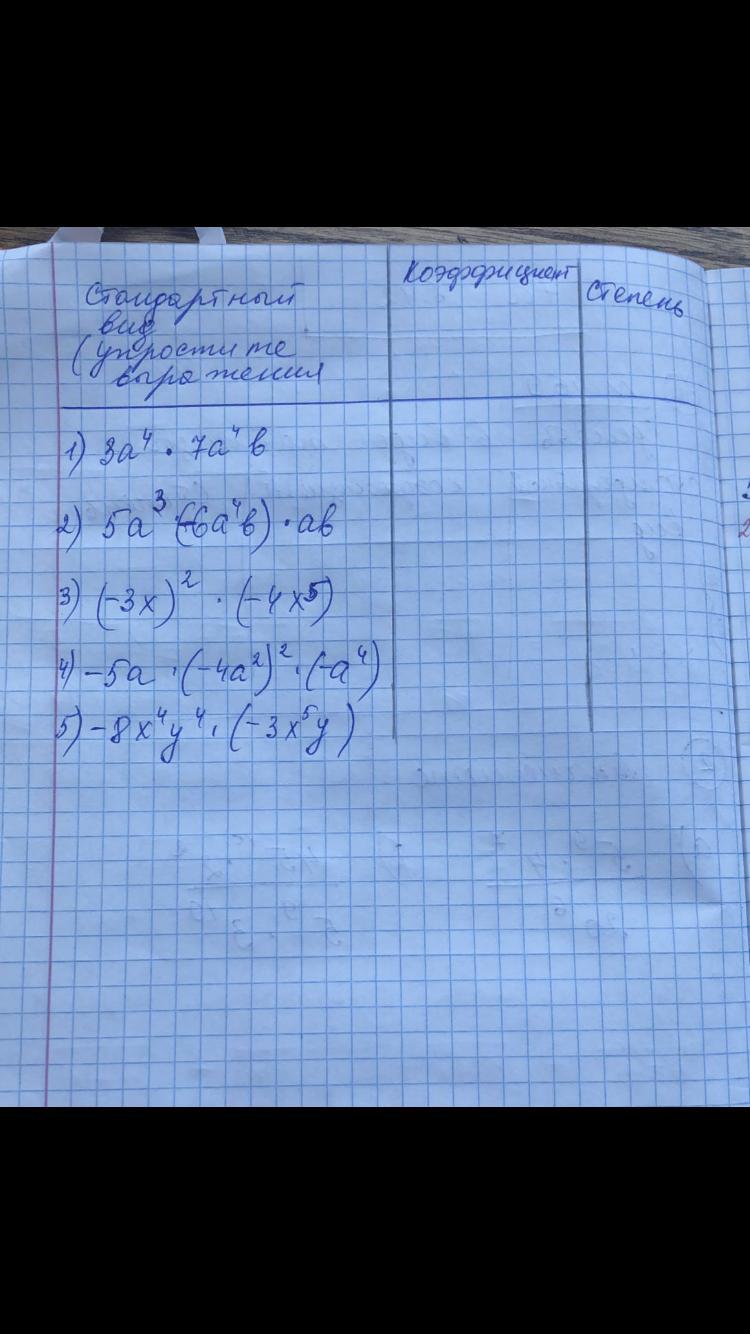 Стандартный
вид
(упростите
выражения
Коэффициент
Степень
1) 3a⁴ · 7a⁴b
2) 5a³ · (-6a⁴b) · ab
3) (-3x)² · (-4x⁵)
4) -5a · (-4a²)² · (-a⁴)
5) -8x⁴y⁴ · (-3x⁵y)